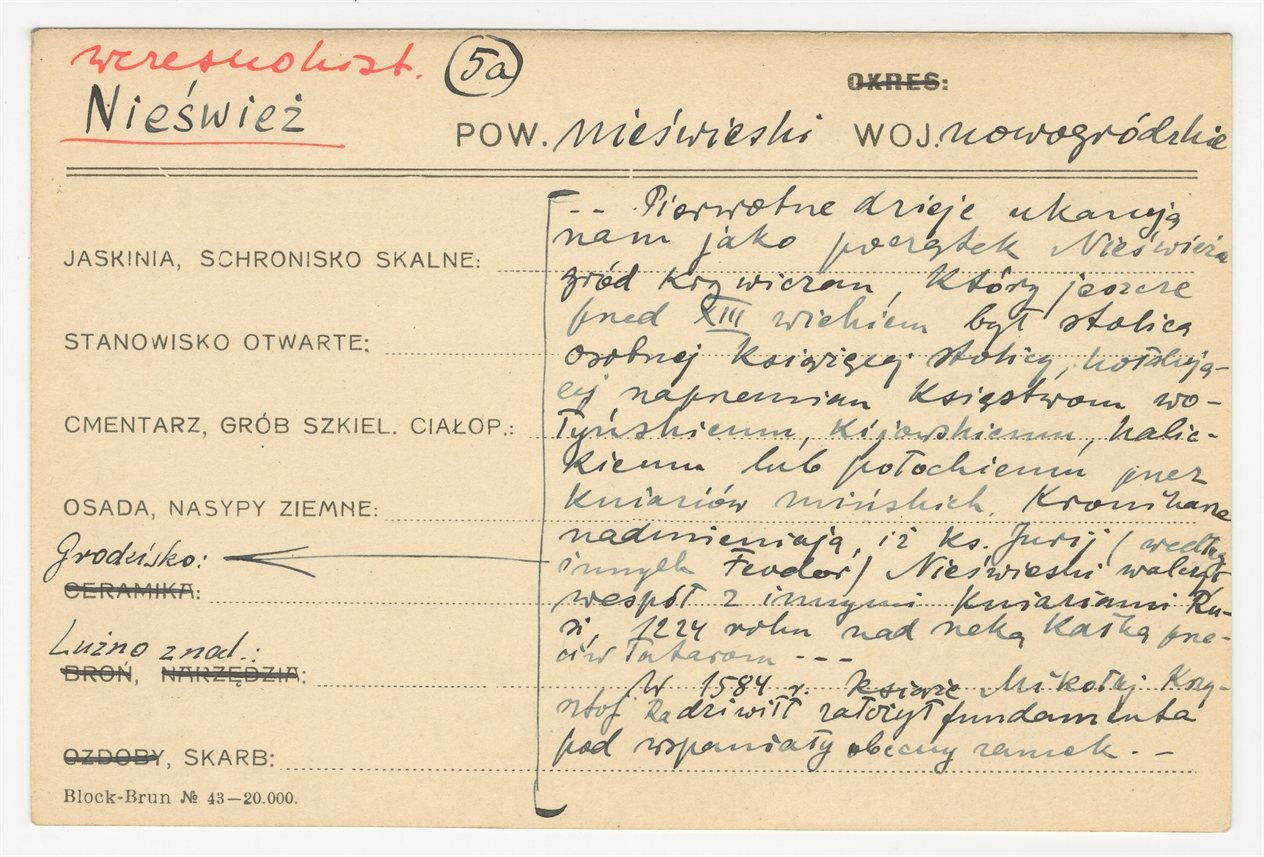 wczesnohist. 5a
OKRES:
Nieśwież
POW. nieświeski WOJ. nowogródzkie
-- Pierwotne dzieje ukazują
nam jako początek Nieświeża
JASKINIA, SCHRONISKO SKALNE:
gród Krywiczan, który jeszcze
przed XIII wiekiem był stolicą
STANOWISKO OTWARTE:
osobnej książęcej stolicy, hołdują-
cej naprzemian Księstwom wo-
CMENTARZ, GRÓB SZKIEL. CIAŁOP.:
łyńskiemu, kijowskiemu, halic-
kiemu lub połockiemu przez
OSADA, NASYPY ZIEMNE:
kniaziów mińskich. Kronikarze
nadmieniają, iż ks. Jurij / według
Grodzisko:
innych Feodor / Nieświeski walczył
CERAMIKA:
wespół z innymi kniaziami Ru-
si, 1224 roku nad rzeką Kałką prze-
Luźno znal.:
ciw Tatarom ---
BROŃ, NARZĘDZIA:
W 1584 r. książę Mikołaj Krzy-
sztof Radziwiłł założył fundamenta
OZDOBY, SKARB:
pod wspaniały obecny zamek. -
Block-Brun № 43—20.000.